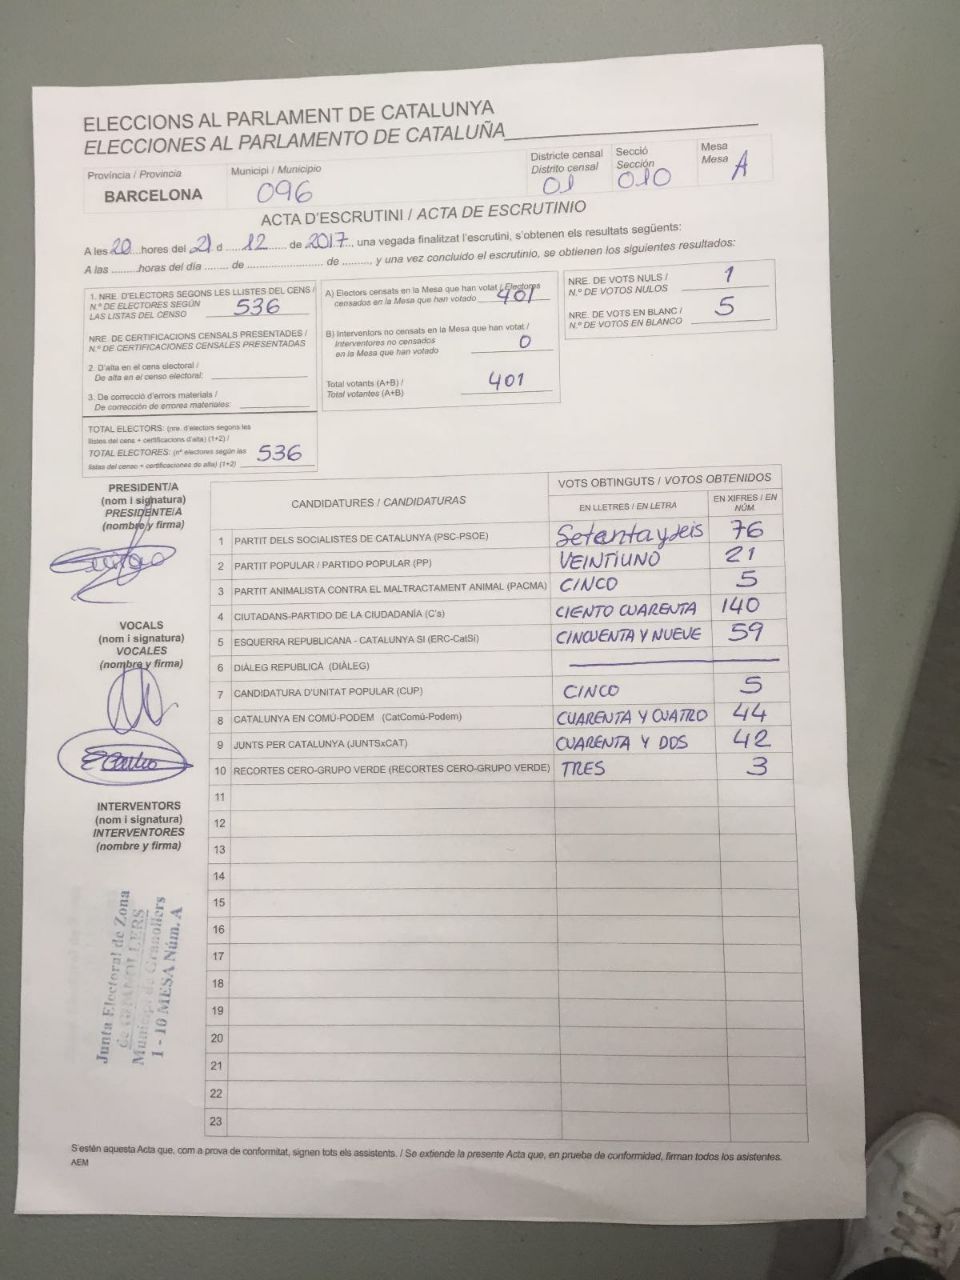 ELECCIONS AL PARLAMENT DE CATALUNYA
ELECCIONES AL PARLAMENTO DE CATALUÑA
Província / Provincia
BARCELONA
Municipi / Municipio
096
Districte censal
Distrito censal
01
Secció
Sección
010
Mesa
Mesa
A
ACTA D'ESCRUTINI / ACTA DE ESCRUTINIO
A les 20 hores del 21 d 12 de 2017, una vegada finalitzat l'escrutini, s'obtenen els resultats següents:
A las ........horas del día ....... de ...................... de ........, y una vez concluido el escrutinio, se obtienen los siguientes resultados:
1. NRE. D'ELECTORS SEGONS LES LLISTES DEL CENS /
N.º DE ELECTORES SEGÚN
LAS LISTAS DEL CENSO 536
NRE. DE CERTIFICACIONS CENSALS PRESENTADES /
N.º DE CERTIFICACIONES CENSALES PRESENTADAS
2. D'alta en el cens electoral /
De alta en el censo electoral:
3. De correcció d'errors materials /
De corrección de errores materiales:
TOTAL ELECTORS: (nre. d'electors segons les
llistes del cens + certificacions d'alta) (1+2) /
TOTAL ELECTORES: (nº electores según las
listas del censo + certificaciones de alta) (1+2) 536
A) Electors censats en la Mesa que han votat / Electores
censados en la Mesa que han votado 401
B) Interventors no censats en la Mesa que han votat /
Interventores no censados
en la Mesa que han votado 0
Total votants (A+B) /
Total votantes (A+B) 401
NRE. DE VOTS NULS /
N.º DE VOTOS NULOS 1
NRE. DE VOTS EN BLANC /
N.º DE VOTOS EN BLANCO 5
PRESIDENT/A
(nom i signatura)
PRESIDENTE/A
(nombre y firma)
VOCALS
(nom i signatura)
VOCALES
(nombre y firma)
INTERVENTORS
(nom i signatura)
INTERVENTORES
(nombre y firma)
Junta Electoral de Zona
de GRANOLLERS
Municipi de Granollers
1 - 10 MESA Núm. A
CANDIDATURES / CANDIDATURAS
VOTS OBTINGUTS / VOTOS OBTENIDOS
EN LLETRES / EN LETRA
EN XIFRES / EN
NÚM.
1 PARTIT DELS SOCIALISTES DE CATALUNYA (PSC-PSOE) Setenta y seis 76
2 PARTIT POPULAR / PARTIDO POPULAR (PP) VEINTIUNO 21
3 PARTIT ANIMALISTA CONTRA EL MALTRACTAMENT ANIMAL (PACMA) CINCO 5
4 CIUTADANS-PARTIDO DE LA CIUDADANÍA (C's) CIENTO CUARENTA 140
5 ESQUERRA REPUBLICANA - CATALUNYA SÍ (ERC-CatSí) CINCUENTA Y NUEVE 59
6 DIÀLEG REPUBLICÀ (DIÀLEG)
7 CANDIDATURA D'UNITAT POPULAR (CUP) CINCO 5
8 CATALUNYA EN COMÚ-PODEM (CatComú-Podem) CUARENTA Y CUATRO 44
9 JUNTS PER CATALUNYA (JUNTSxCAT) CUARENTA Y DOS 42
10 RECORTES CERO-GRUPO VERDE (RECORTES CERO-GRUPO VERDE) TRES 3
11
12
13
14
15
16
17
18
19
20
21
22
23
S'estén aquesta Acta que, com a prova de conformitat, signen tots els assistents. / Se extiende la presente Acta que, en prueba de conformidad, firman todos los asistentes.
AEM